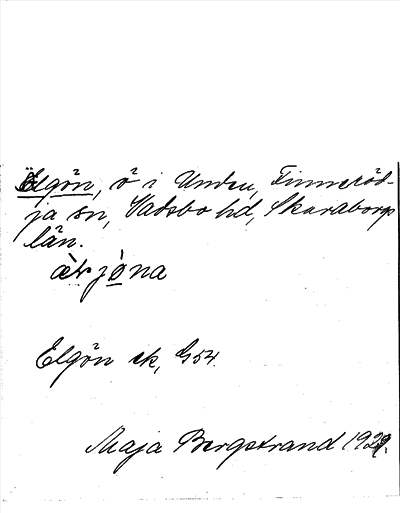 Elgön, ö i Unden, Finneröd-
ja sn, Vadsbo hd, Skaraborgs
län.
Elgön ek, G54.
Maja Bergstrand 1929.